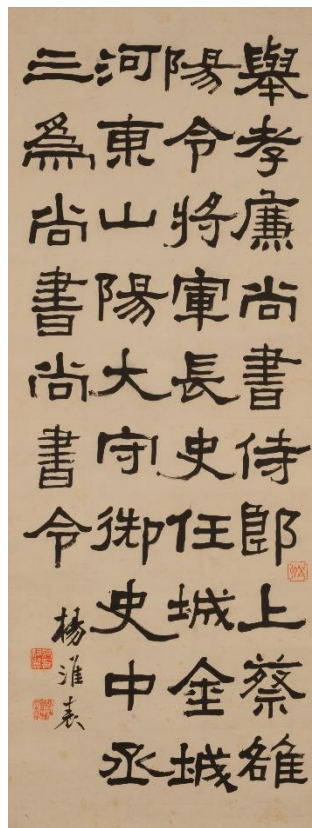 舉孝廉尚書侍郎上蔡雒
陽令將軍長史任城金城
河東山陽大守御史中丞
三為尚書尚書令
楊淮表